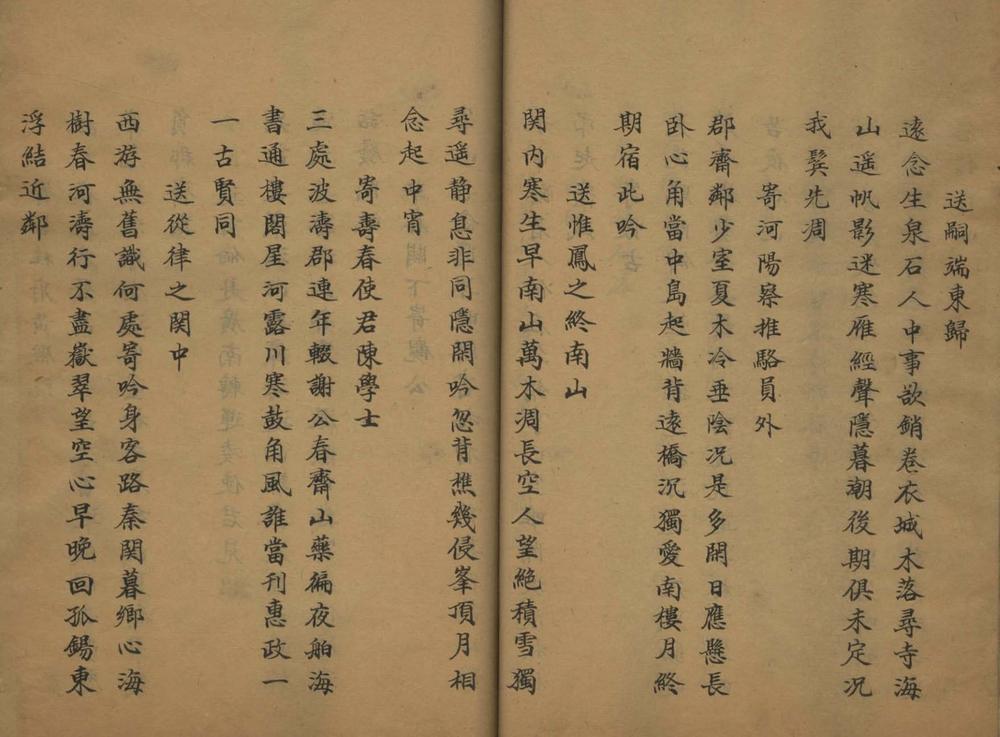 送嗣端東歸
遠念生泉石人中事欲銷卷衣城木落尋寺海
山遥帆影迷寒雁經聲隱暮潮後期俱未定况
我鬓先凋
寄河陽察推駱員外
郡齋鄰少室夏木冷垂陰况是多閑日應懸長
卧心角當中島起牆背遠橋沉獨愛南樓月終
期宿此吟
送惟鳳之終南山
関内寒生早南山萬木凋長空人望絶積雪獨
尋遥静息非同隱閑吟忽背樵幾侵峯頂月相
念起中宵
寄壽春使君陳學士
三處波濤郡連年輟謝公春齋山藥徧夜舶海
書通樓閣星河露川寒鼓角風誰當刊惠政一
一古賢同
送從律之関中
西游無舊識何處寄吟身客路秦関暮鄉心海
樹春河濤行不盡嶽翠望空心早晚回孤錫東
浮結近鄰